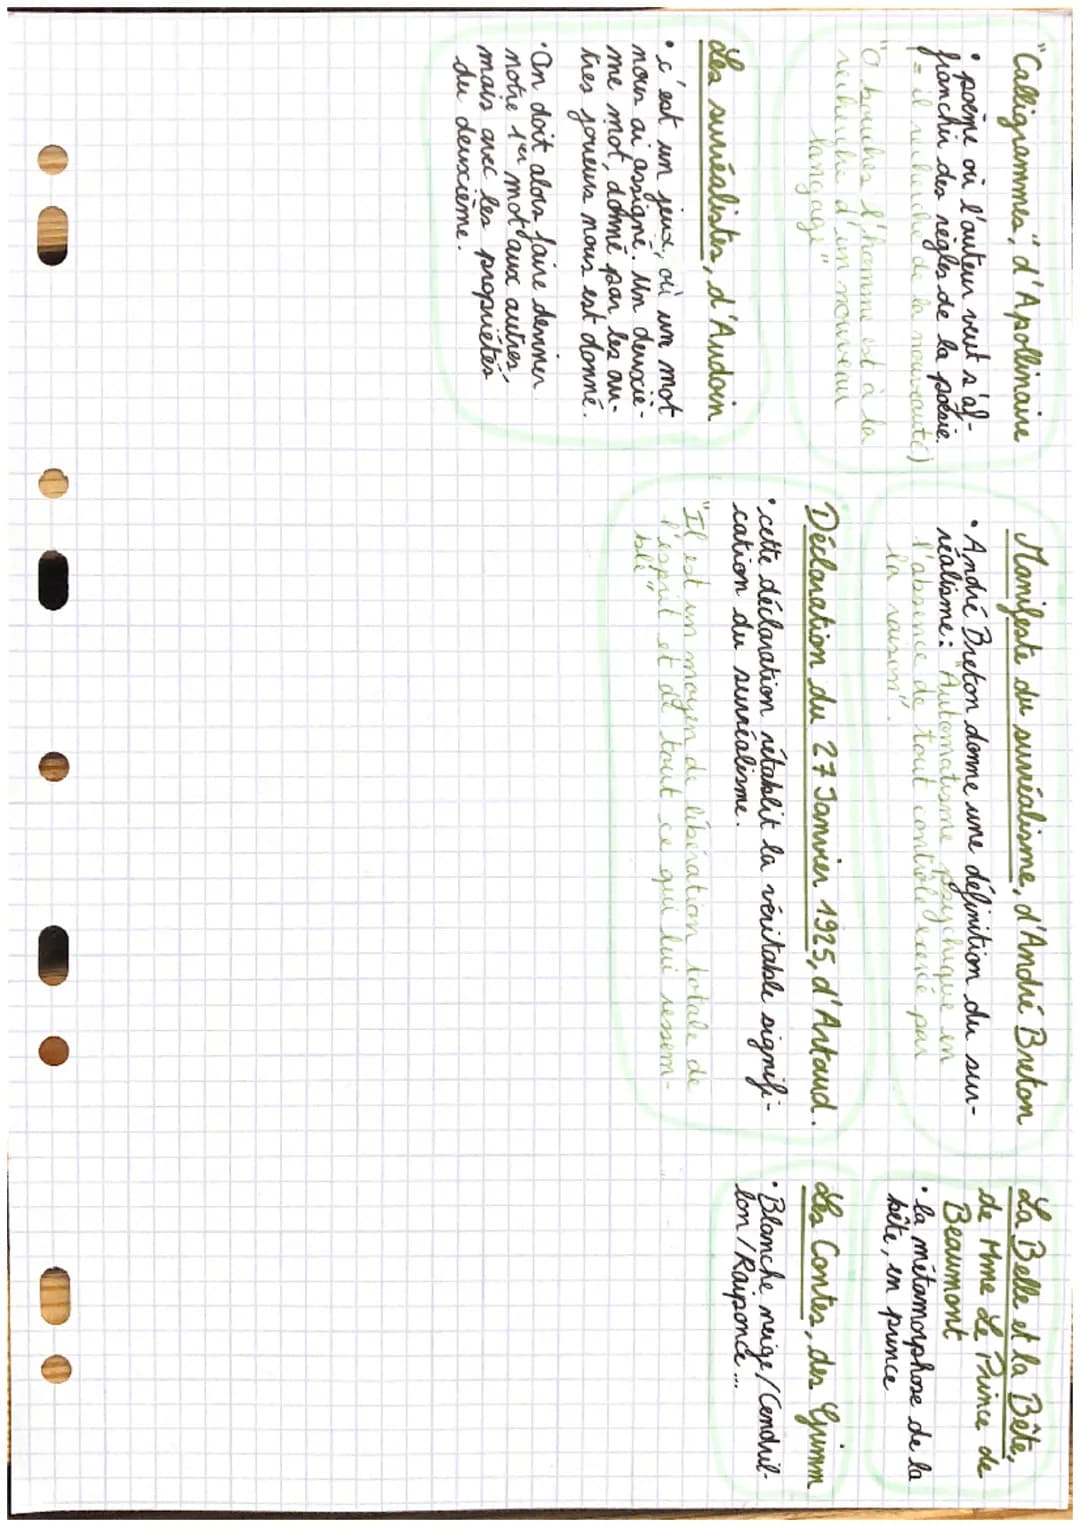 "Calligrammes", d'Apollinaire
• poème où l'auteur veut s'af-
franchir des règles de la poésie.
(= il recherche de la nouveauté)
"O bouches l'homme est à la
recherche d'un nouveau
langage"
Les surréalistes, d'Audoin
• c'est un jeux, où un mot
nous ai assigné. Un deuxiè-
me mot, donné par les au-
tres joueurs nous est donné.
• On doit alors faire deviner
notre 1er mot aux autres,
mais avec les propriétés
du deuxième.
Manifeste du surréalisme, d'André Breton
• André Breton donne une définition du sur-
réalisme: "Automatisme psychique en
l'absence de tout contrôle exercé par
la raison".
Déclaration du 27 Janvier 1925, d'Artaud.
• cette déclaration rétablit la véritable signifi-
cation du surréalisme.
"Il est un moyen de libération totale de
l'esprit et de tout ce qui lui ressem-
ble"
La Belle et la Bête,
de Mme Le Prince de
Beaumont
• la métamorphose de la
bête, en prince
Les Contes, des Grimm
• Blanche neige/Cendril-
lon/Raiponce...